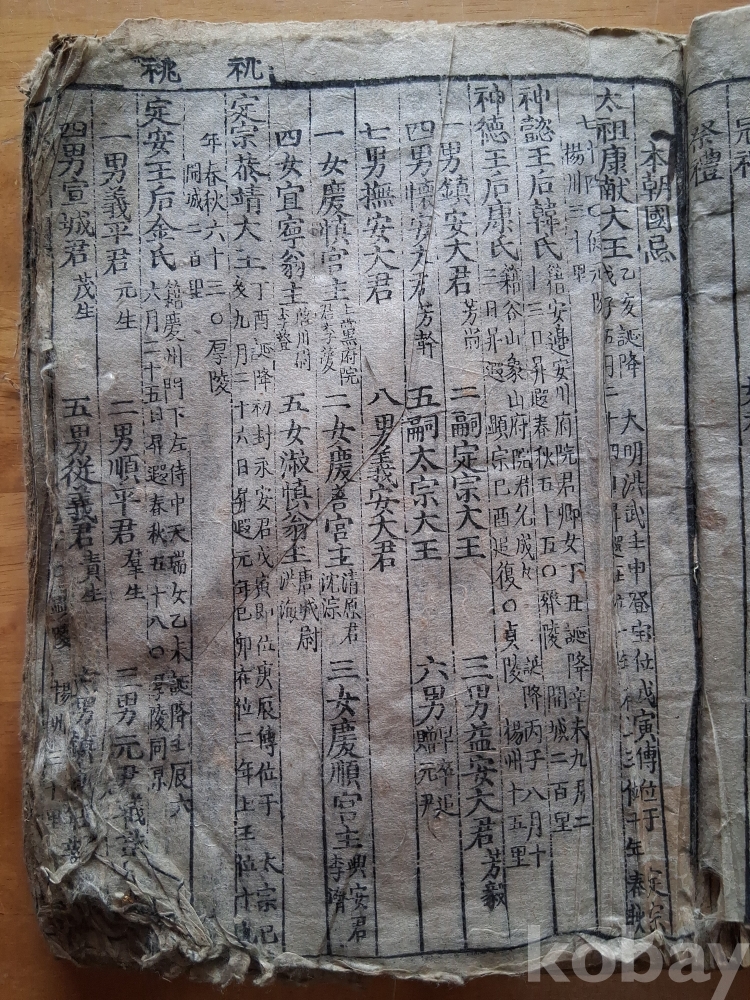 祭禮
本朝國忌
太祖康献大王 乙亥誕降 大明洪武壬申登宝位戊寅傳位于 定宗
楊州三十里
神懿王后韓氏 籍安邊安川府院君卿女丁丑誕降辛未九月二
十三日昇遐春秋五十五○齊陵 開城二百里
神德王后康氏 籍谷山象山府院君允成女 誕降丙子八月十
三日昇遐 顯宗己酉追復○貞陵 楊州十五里
一男鎮安大君 芳雨 二嗣定宗大王 三男益安大君 芳毅
四男懷安大君 芳幹 五嗣太宗大王 六男 早卒追贈元尹
七男撫安大君 八男義安大君
一女慶慎宮主 上黨府院君李薆 二女慶善宮主 清原君沈淙 三女慶順宮主 興安君李濟
四女宜寧翁主 啓川尉李薱 五女淑慎翁主 唐城尉洪海
定宗恭靖大王 丁酉誕降初封永安君戊寅即位庚辰傳位于 太宗己
亥九月二十六日昇遐元年己卯在位二年上王位十九
年春秋六十三○厚陵 開城二百里
定安王后金氏 籍慶州門下左侍中天瑞女乙未誕降壬辰六
月二十五日昇遐春秋五十八○厚陵同京
一男義平君 元生 二男順平君 羣生 三男元尹義
四男宣城君 茂生 五男從義君 貴生 六男鎮
祧